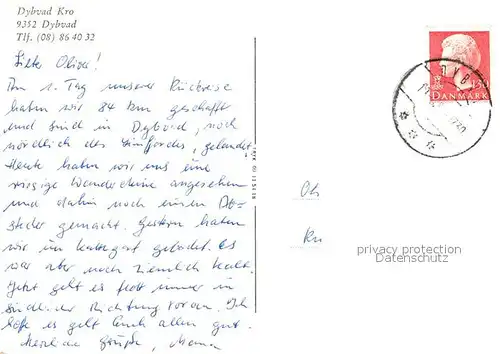 Dybvad Kro
9352 Dybvad
Tlf. (08) 86 40 32
Lieber Oliver!
Am 1. Tag unserer Rückreise
haben wir 84 km geschafft
und sind in Dybvad, noch
nördlich des Limfjords, gelandet.
Heute haben wir uns eine
riesige Wanderdüne angesehen
und dahin noch einen Ab-
stecher gemacht. Gestern haben
wir im Kattegat gebadet. Es
war aber noch ziemlich kalt.
Jetzt geht es flott immer in
südlicher Richtung voran. Ich
hoffe es geht Euch allen gut.
Herzliche Grüße, Mama
DANMARK
DYBVAD
Oh
Kn
privacy protection
Datenschutz